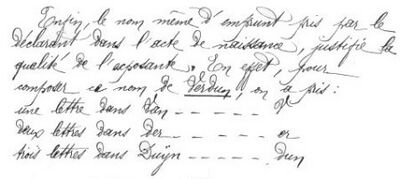 Enfin, le nom même d'emprunt pris par le
déclarant dans l'acte de naissance, justifie la
qualité de l'exposante. En effet, pour
composer ce nom de Verdun, on a pris:
une lettre dans Van - - - - - V
deux lettres dans der - - - - - er
trois lettres dans Duÿn - - - - - dun